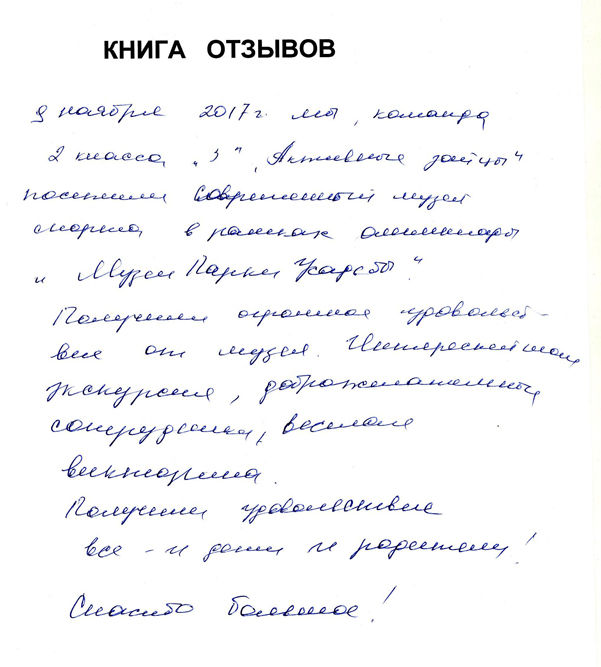 КНИГА ОТЗЫВОВ
9 ноября 2017 г. мы, команда
2 класса „З" „Активные зайцы"
посетили Современный музей
спорта в рамках олимпиады
„Музеи Парки Усадьбы".
Получили огромное удовольст-
вие от музея. Интереснейшая
экскурсия, доброжелательные
сотрудники, веселая
викторина.
Получили удовольствие
все - и дети и родители!
Спасибо большое!